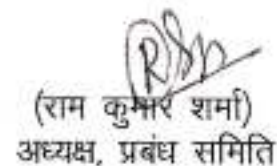 (राम कुमार शर्मा)
अध्यक्ष, प्रबंध समिति